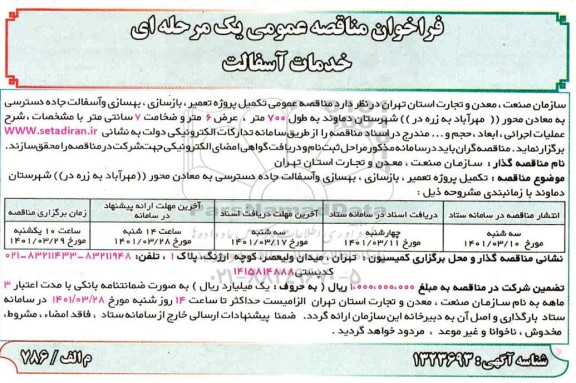 فراخوان مناقصه عمومی یک مرحله ای
خدمات آسفالت
سازمان صنعت ، معدن و تجارت استان تهران در نظر دارد مناقصه عمومی تکمیل پروژه تعمیر ، بازسازی ، بهسازی وآسفالت جاده دسترسی
به معادن محور (( مهرآباد به زره در )) شهرستان دماوند به طول ۷۰۰ متر ، عرض ۶ متر و ضخامت ۷ سانتی متر با مشخصات ، شرح
عملیات اجرایی ، ابعاد ، حجم و ... مندرج در اسناد مناقصه را از طریق سامانه تدارکات الکترونیکی دولت به نشانی WWW.setadiran.ir
برگزار نماید. مناقصه گران باید در سامانه مذکور مراحل ثبت نام و دریافت گواهی امضای الکترونیکی جهت شرکت در مناقصه را محقق سازند.
نام مناقصه گذار : سازمان صنعت ، معدن و تجارت استان تهران
موضوع مناقصه : تکمیل پروژه تعمیر ، بازسازی ، بهسازی وآسفالت جاده دسترسی به معادن محور (( مهرآباد به زره در )) شهرستان
دماوند با زمانبندی مشروحه ذیل :
انتشار مناقصه در سامانه ستاد
دریافت اسناد در سامانه ستاد
آخرین مهلت دریافت اسناد
آخرین مهلت ارائه پیشنهاد در سامانه
زمان برگزاری مناقصه
سه شنبه مورخ ۱۴۰۱/۰۳/۱۰
چهارشنبه مورخ ۱۴۰۱/۰۳/۱۱
سه شنبه مورخ ۱۴۰۱/۰۳/۱۷
ساعت ۱۴ شنبه مورخ ۱۴۰۱/۰۳/۲۸
ساعت ۱۰ یکشنبه مورخ ۱۴۰۱/۰۳/۲۹
نشانی مناقصه گذار و محل برگزاری کمیسیون : تهران ـ میدان ولیعصر، کوچه ارژنگ، پلاک ۱ ، تلفن: ۸۳۲۱۱۹۴۸-۸۳۲۱۱۴۳۳-۰۲۱
کدپستی ۱۴۱۵۸۱۴۸۸۸
تضمین شرکت در مناقصه به مبلغ ۱,۰۰۰,۰۰۰,۰۰۰ ریال ( به حروف : یک میلیارد ریال ) به صورت ضمانتنامه بانکی با مدت اعتبار ۳
ماهه به نام سازمان صنعت ، معدن و تجارت استان تهران الزامیست حداکثر تا ساعت ۱۴ روز شنبه مورخ ۱۴۰۱/۰۳/۲۸ در سامانه
ستاد بارگذاری و اصل آن به دبیرخانه این سازمان ارائه گردد. ضمنا پیشنهادات ارسالی خارج از سامانه ستاد ، فاقد امضاء ، مشروط،
مخدوش ، ناخوانا و غیر موعد ، مردود خواهد گردید .
شناسه آگهی : ۱۳۲۳۶۹۳
م الف / ۷۸۶